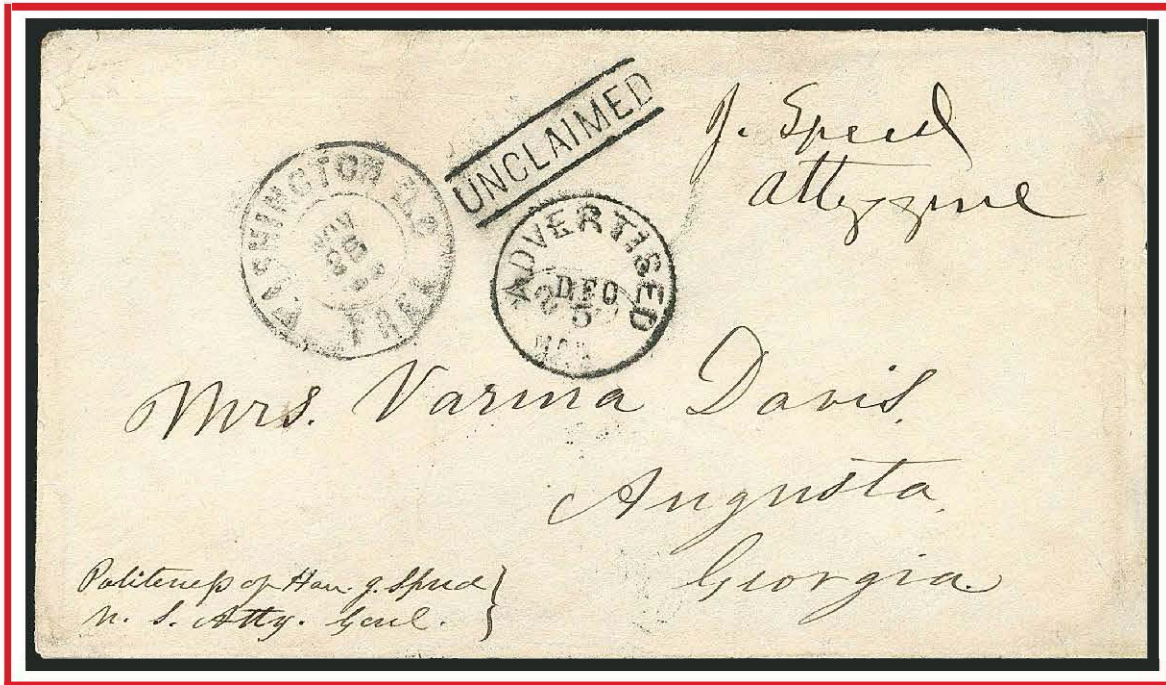 UNCLAIMED
J. Speed
Atty genl
WASHINGTON D.C.
NOV
FREE
ADVERTISED
DEC
5
Mrs. Varina Davis.
Augusta,
Georgia.
Politeness of Hon. J. Speed
U. S. Atty. Genl.